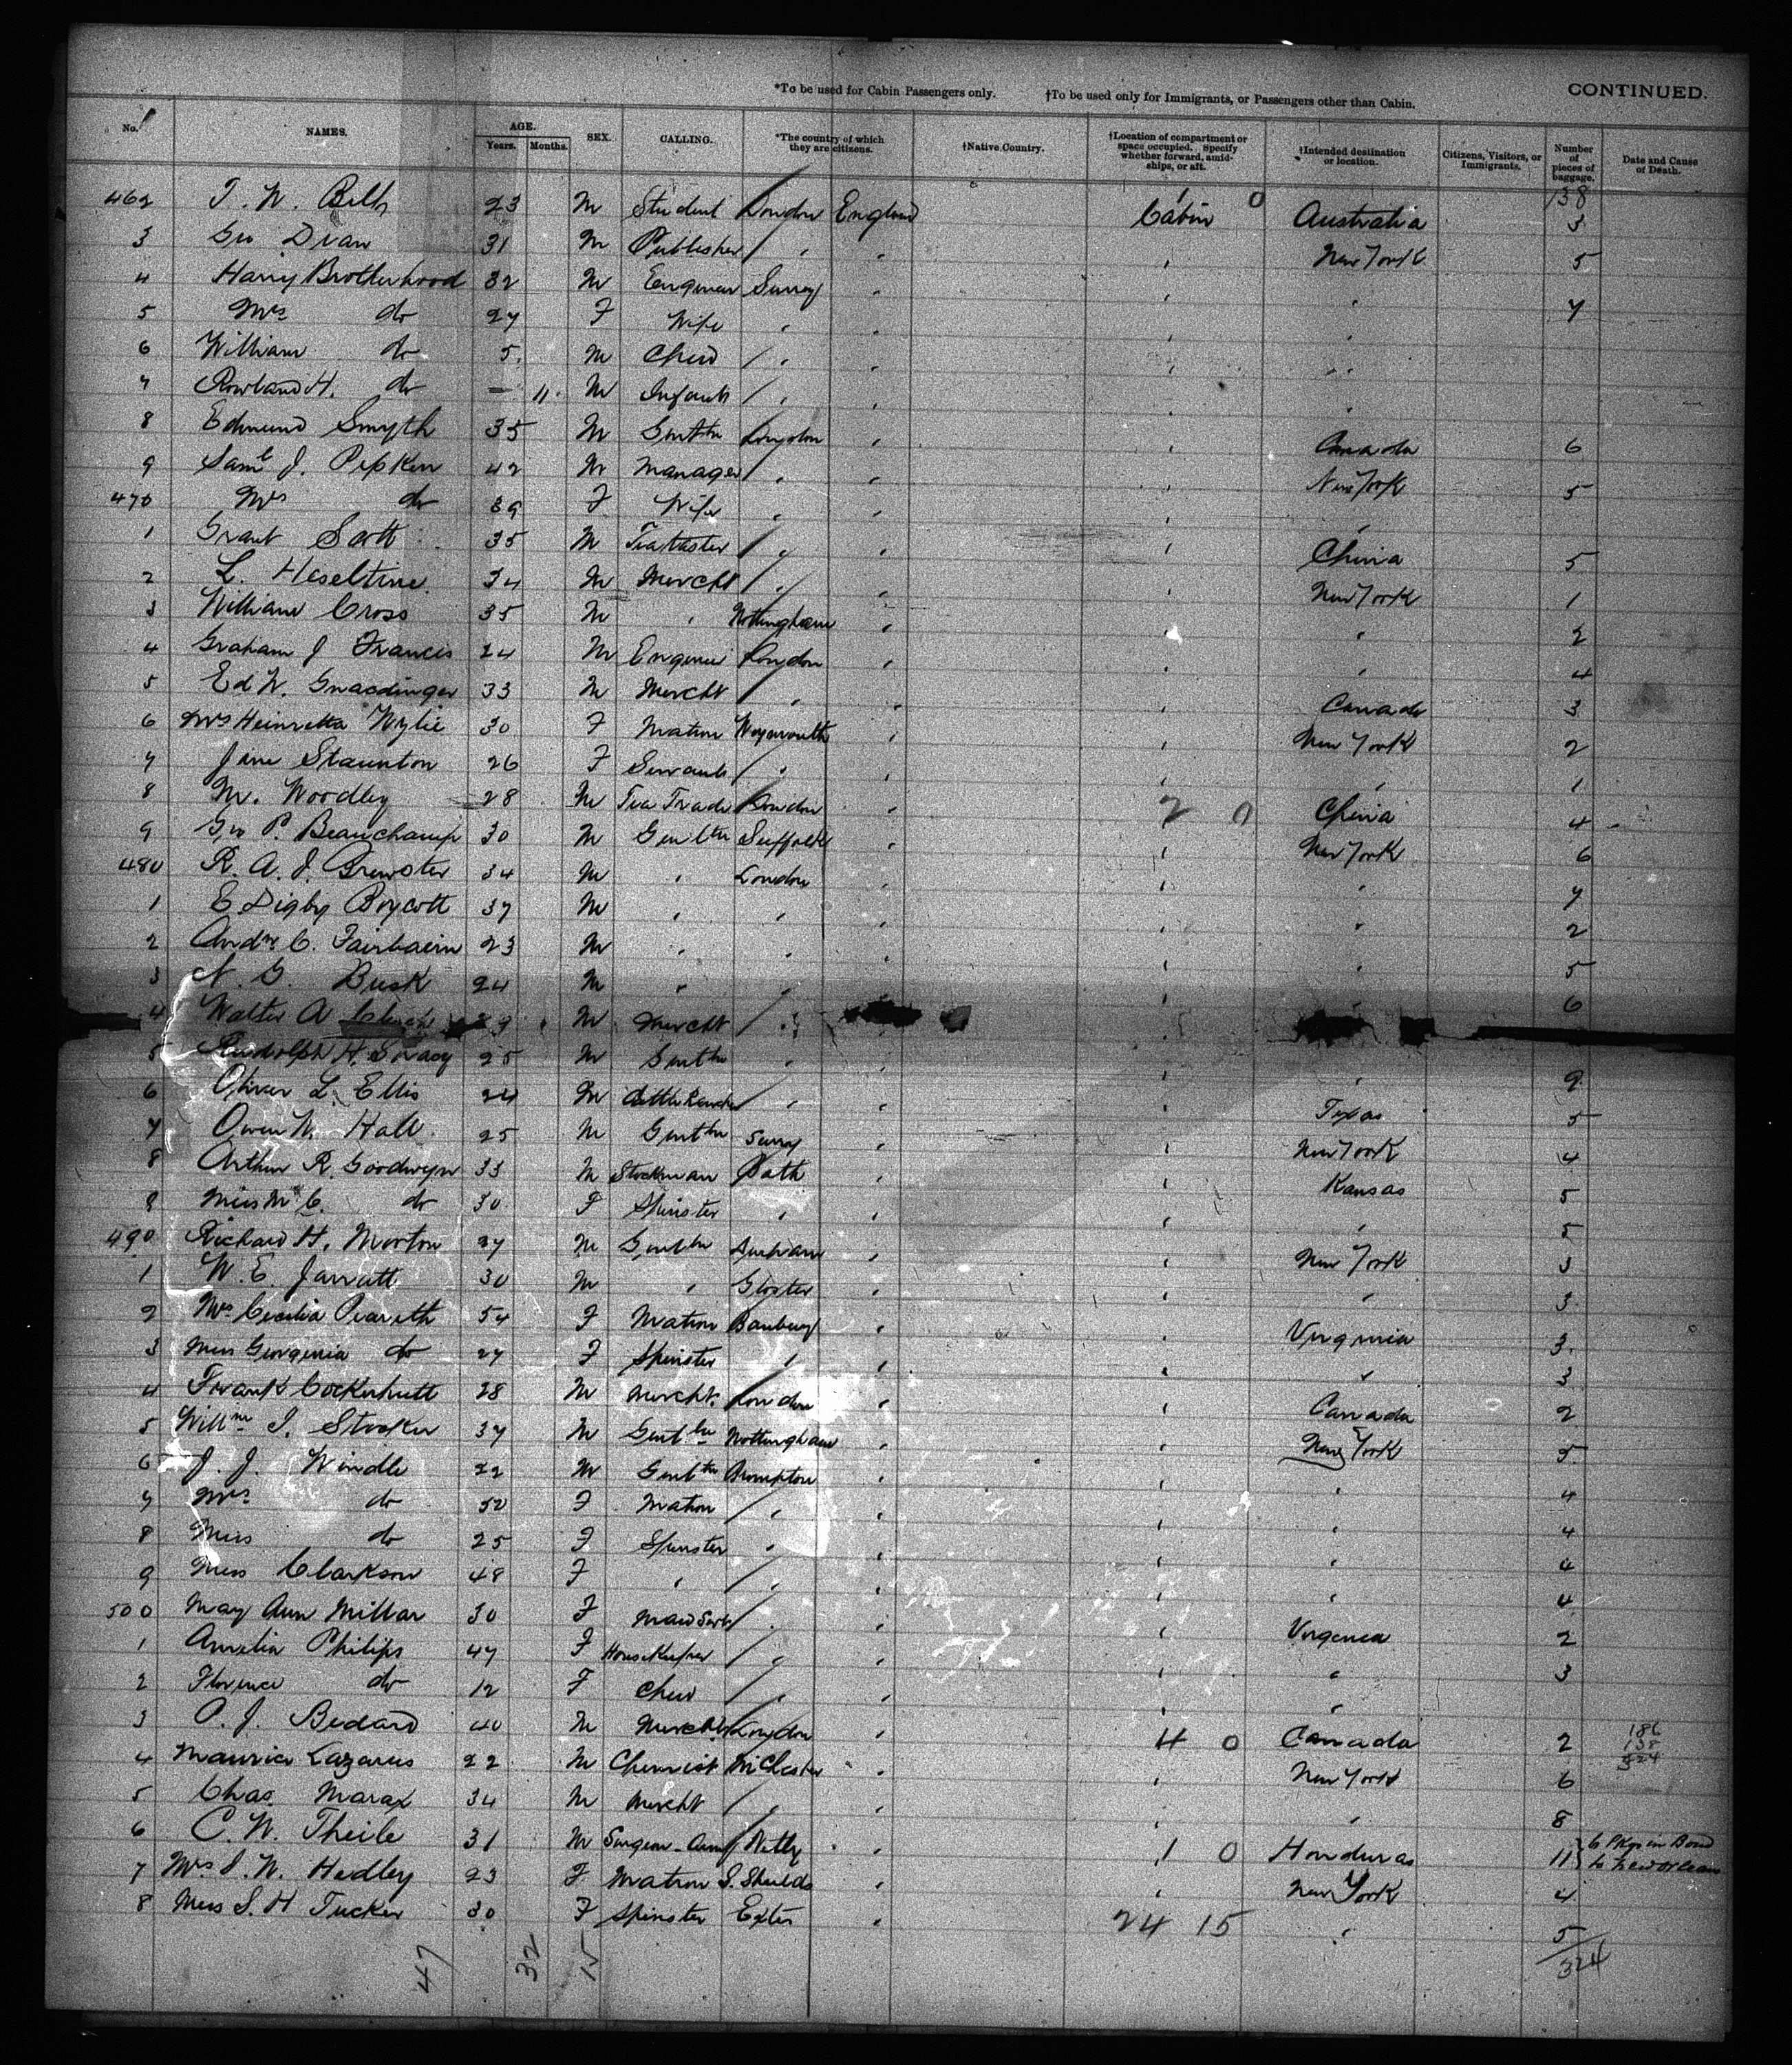 *To be used for Cabin Passengers only. †To be used only for Immigrants, or Passengers other than Cabin. CONTINUED.
No. NAMES. AGE. Years. Months. SEX. CALLING. *The country of which they are citizens. †Native Country. †Location of compartment or space occupied. Specify whether forward, amidships, or aft. †Intended destination or location. Citizens, Visitors, or Immigrants. Number of pieces of baggage. Date and Cause of Death.
138
462 J. W. 23 M Student London England Cabin 0 Australia 3
3 Geo Dean 31 M Publisher " " " New York 5
4 Harry Brotherhood 32 M Engineer Surrey " " " 7
5 Mrs do 27 F Wife " " " "
6 William do 5 M Child " " " "
7 Rowland H. do — 11 M Infant " " " "
8 Edmund Smyth 35 M Gentln London " " Canada 6
9 Saml J. Pipkin 42 M Manager " " " New York 5
470 Mrs do 39 F Wife " " " "
1 Grant Scott 35 M Teataster " " " China 5
2 L. Heseltine 34 M Mercht " " " New York 1
3 William Cross 35 M " Nottingham " " " 2
4 Graham J Francis 24 M Engineer London " " " 4
5 Ed W. Gnaedinger 33 M Mercht " " " Canada 3
6 Mrs Heinretta Wylie 30 F Matron Weymouth " " New York 2
7 Jane Staunton 26 F Servant " " " " 1
8 M. Woodley 28 M Tea Trade London " 2 0 China 4
9 Geo P. Beauchamp 30 M Gentln Suffolk " " New York 6
480 R. A. J. Brewster 34 M " London " " " 7
1 E Digby Boycott 37 M " " " " " 2
2 Andw C. Fairbairn 23 M " " " " " 5
3 N. G. Busk 24 M " " " " " 6
4 Walter A 29 M Mercht "
5 Rudolph H. 25 M Gentln " " " 9
6 Oliver L. Ellis 24 M Cattle Rancher " " " Texas 5
7 Owen W. Hall 25 M Gentln Surrey " New York 4
8 Arthur R. Goodwyn 33 M Stockman Bath " " Kansas 5
9 Miss M. C. do 30 F Spinster " " " " 5
490 Richard H. Morton 37 M Gentln Durham " " New York 3
1 W. E. Jarratt 30 M " Gloster " " " 3
2 Mrs Cecilia Peareth 54 F Matron Banbury " " Virginia 3
3 Miss Georgenia do 27 F Spinster " " " " 3
4 Frank 28 M Mercht. London " " Canada 2
5 Willm I. Stocker 37 M Gentln Nottingham " " New York 5
6 J. J. Windle 22 M Gentln Brompton " " " 4
7 Mrs do 50 F Matron " " " " 4
8 Miss do 25 F Spinster " " " " 4
9 Miss Clarkson 48 F " " " " " 4
500 May Ann Millar 30 F Maid Servt " " " Virginia 2
1 Amelia Philips 47 F HouseKeeper " " " " 3
2 Florence do 12 F Child " " " "
3 P. J. Bedard 40 M Mercht London " 4 0 Canada 2 186 138 324
4 Maurice Lazarus 22 M Chemist MChester " " New York 6
5 Chas. Marax 34 M Mercht " " " " 8
6 C. W. Theile 31 M Surgeon Army Netley " 1 0 Honduras 11 6 Pkgs in Bond to New Orleans
7 Mrs J. W. Hedley 23 F Matron S. Shields " " New York 4
8 Miss S. H Tucker 30 F Spinster Exter " 24 15 " 5
47 32 15 324